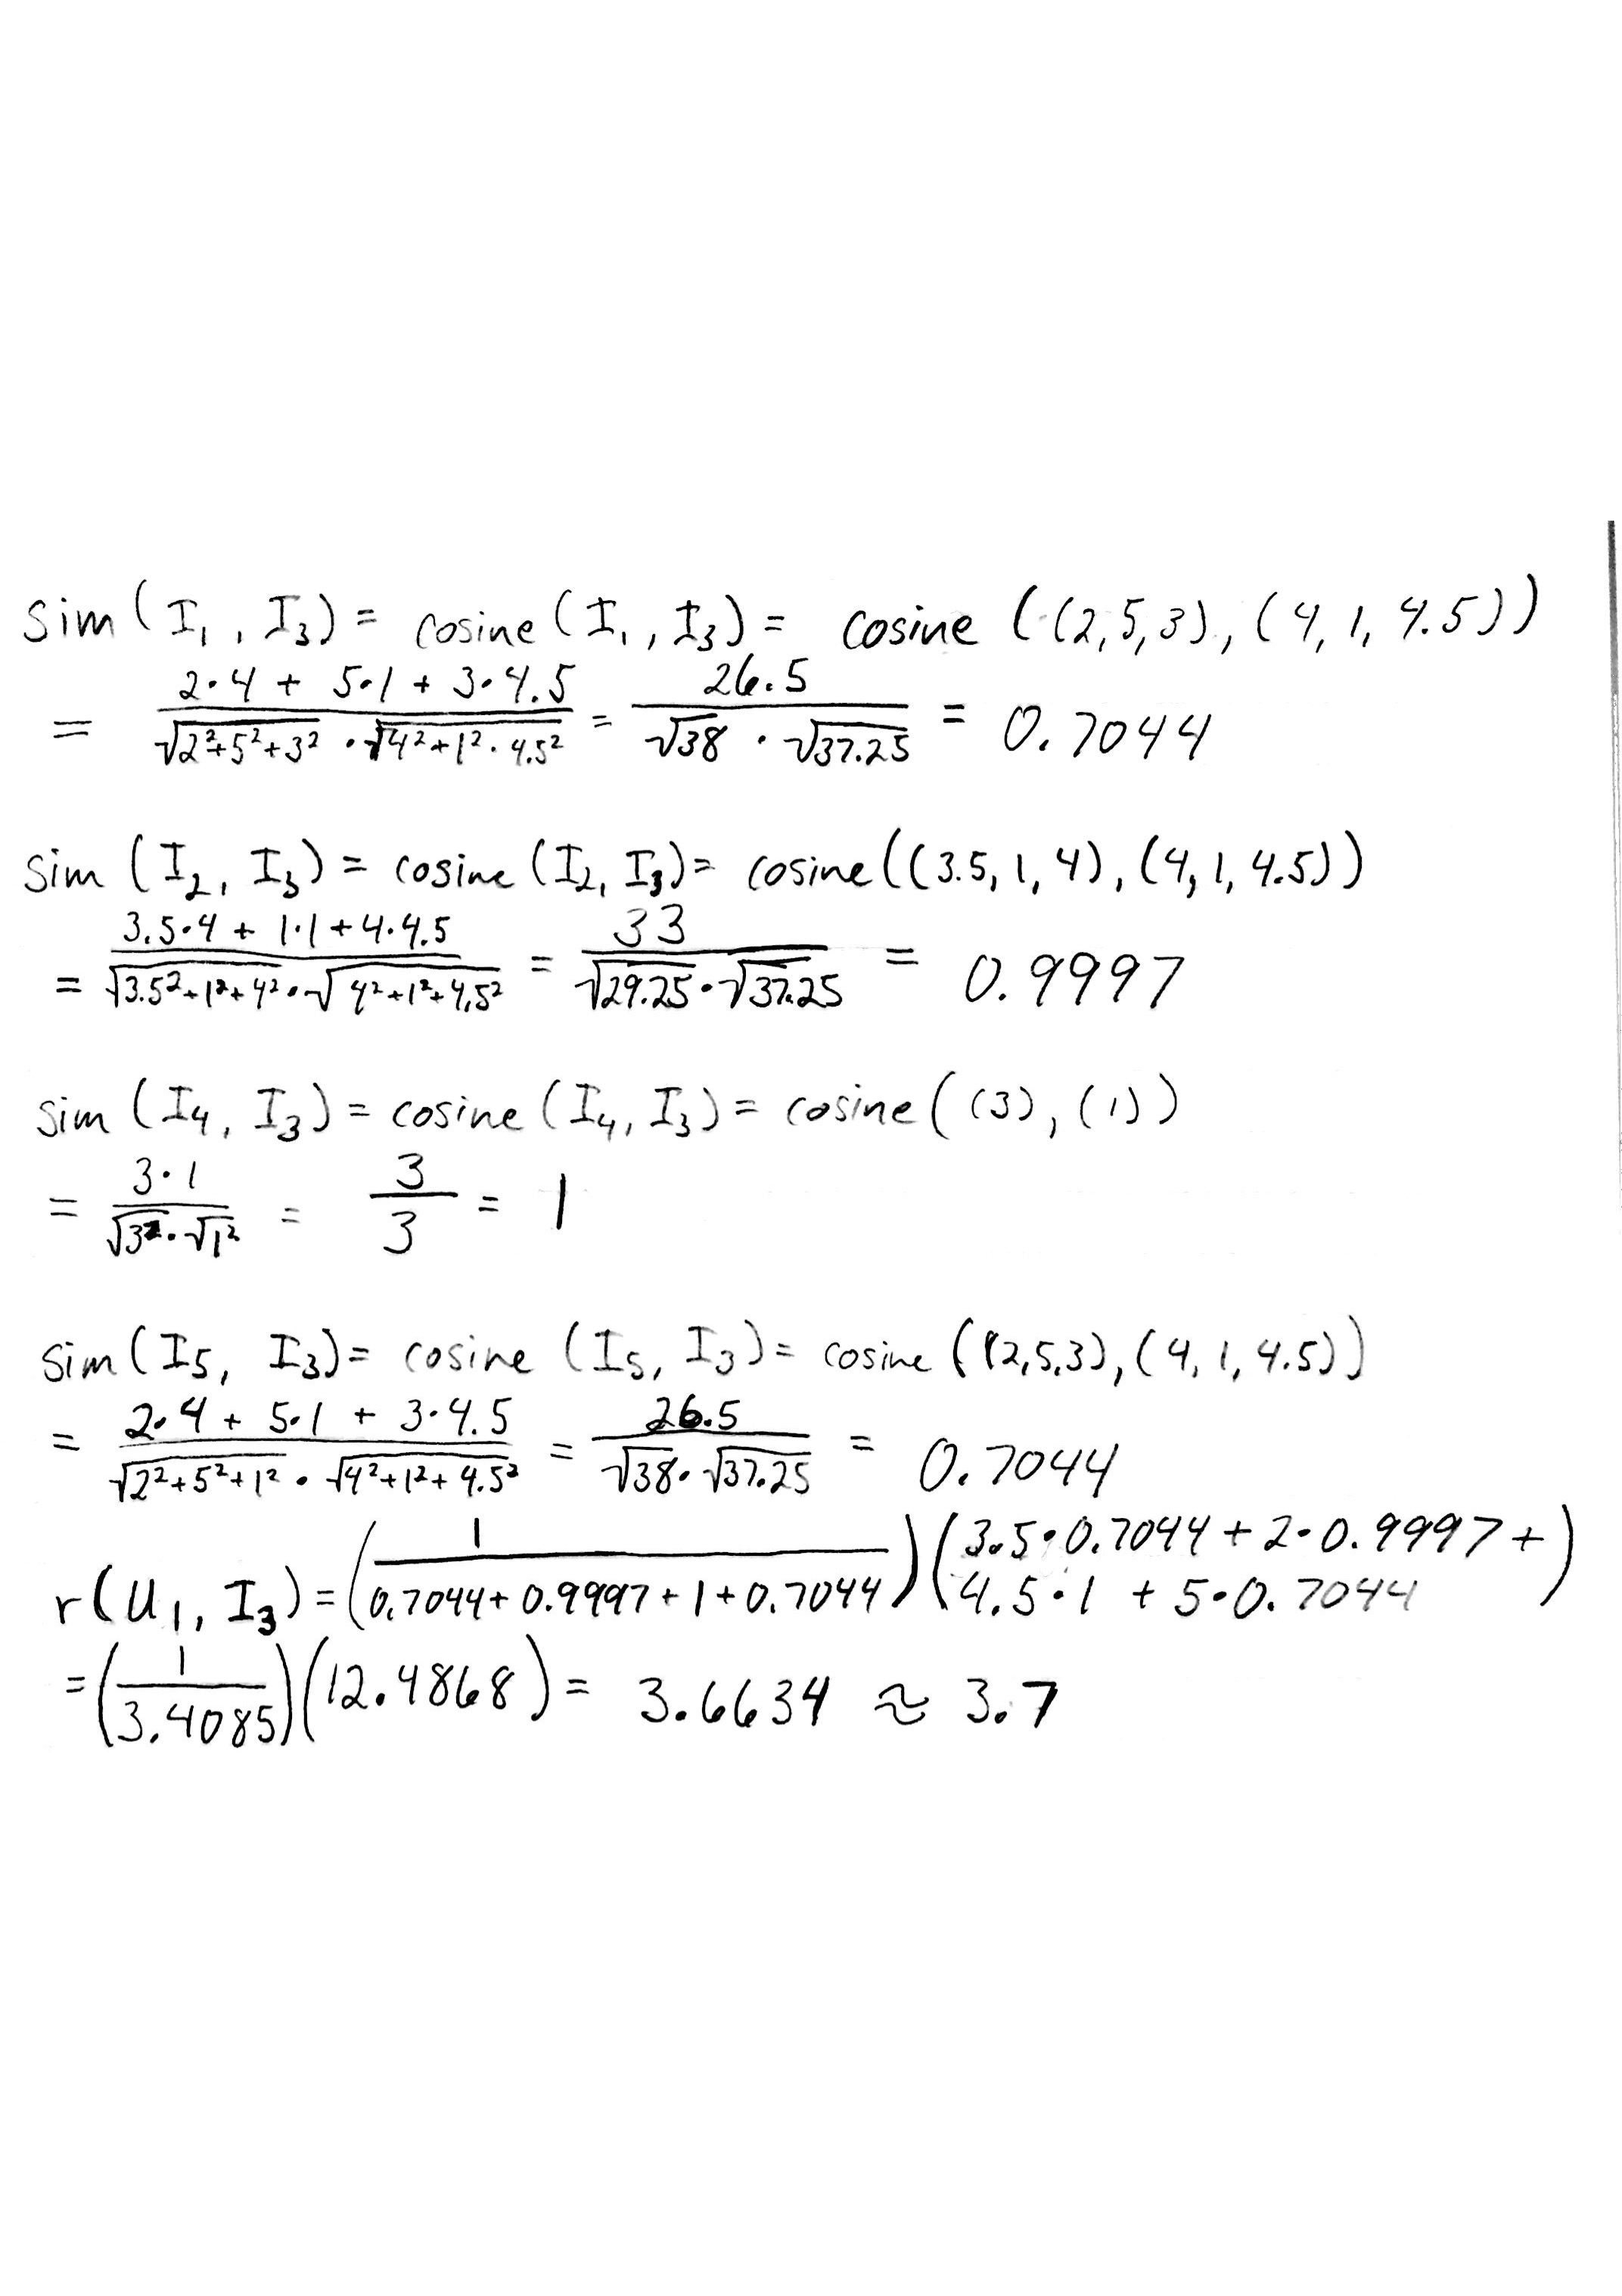 sim(I₁, I₃) = cosine(I₁, I₃) = cosine((2,5,3), (4,1,4.5))
= (2·4 + 5·1 + 3·4.5)/(√(2²+5²+3²) · √(4²+1²·4.5²)) = 26.5/(√38 · √37.25) = 0.7044
sim(I₂, I₃) = cosine(I₂, I₃) = cosine((3.5, 1, 4), (4, 1, 4.5))
= (3.5·4 + 1·1 + 4·4.5)/(√(3.5²+1²+4²) · √(4²+1²+4.5²)) = 33/(√29.25 · √37.25) = 0.9997
sim(I₄, I₃) = cosine(I₄, I₃) = cosine((3), (1))
= (3·1)/(√3² · √1²) = 3/3 = 1
sim(I₅, I₃) = cosine(I₅, I₃) = cosine((2,5,3), (4, 1, 4.5))
= (2·4 + 5·1 + 3·4.5)/(√(2²+5²+1²) · √(4²+1²+4.5²)) = 26.5/(√38 · √37.25) = 0.7044
r(U₁, I₃) = (1/(0.7044 + 0.9997 + 1 + 0.7044))(3.5·0.7044 + 2·0.9997 + 4.5·1 + 5·0.7044)
= (1/3.4085)(12.4868) = 3.6634 ≈ 3.7